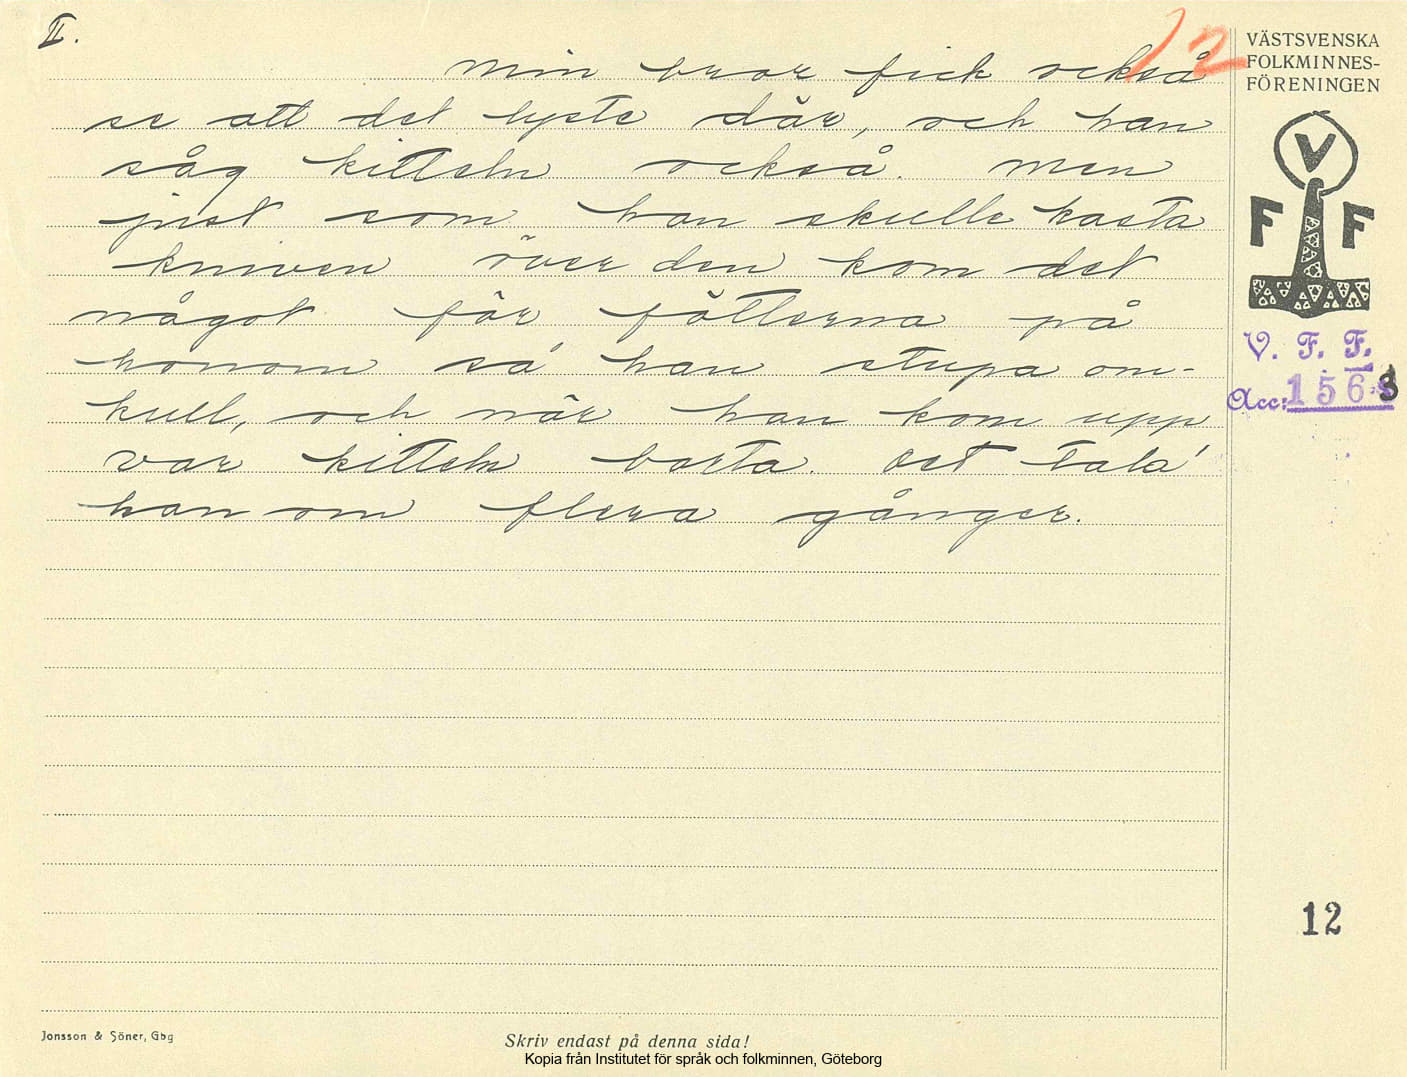 II.
12
Min bror fick också
se att det lyste där, och han
såg kitteln också. Men
just som han skulle kasta
kniven över den kom det
något för fötterna på
honom så han stupa om-
kull, och när han kom upp
var kitteln borta. Det tala'
han om flera gånger.
VÄSTSVENSKA
FOLKMINNES-
FÖRENINGEN
V
F F
V. F. F.
Acc: 1563
12
Jonsson & Söner, Gbg
Skriv endast på denna sida!
Kopia från Institutet för språk och folkminnen, Göteborg